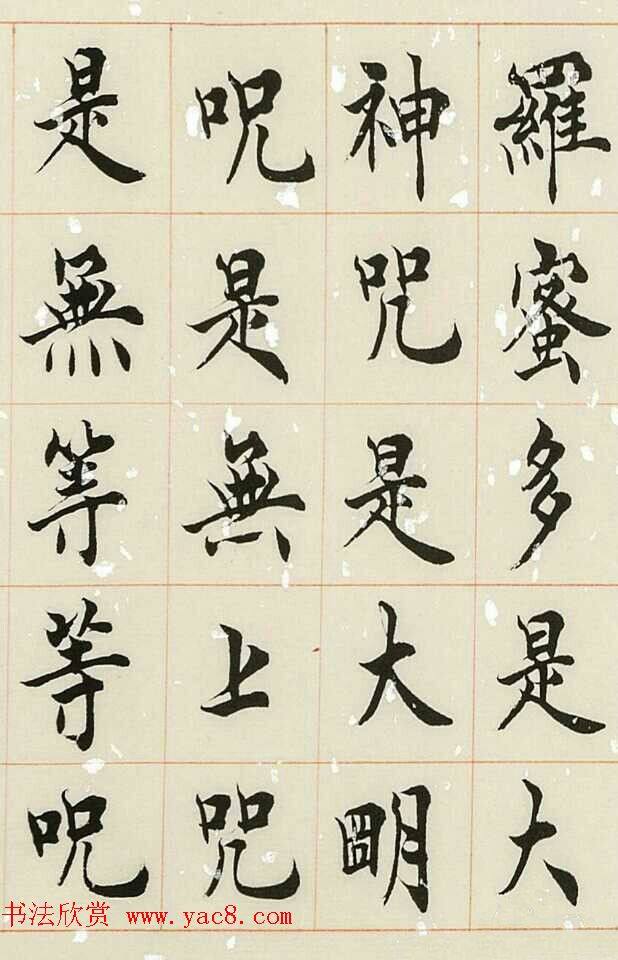 羅蜜多是大
神咒是大明
呪是無上咒
是無等等呪
书法欣赏 www.yac8.com